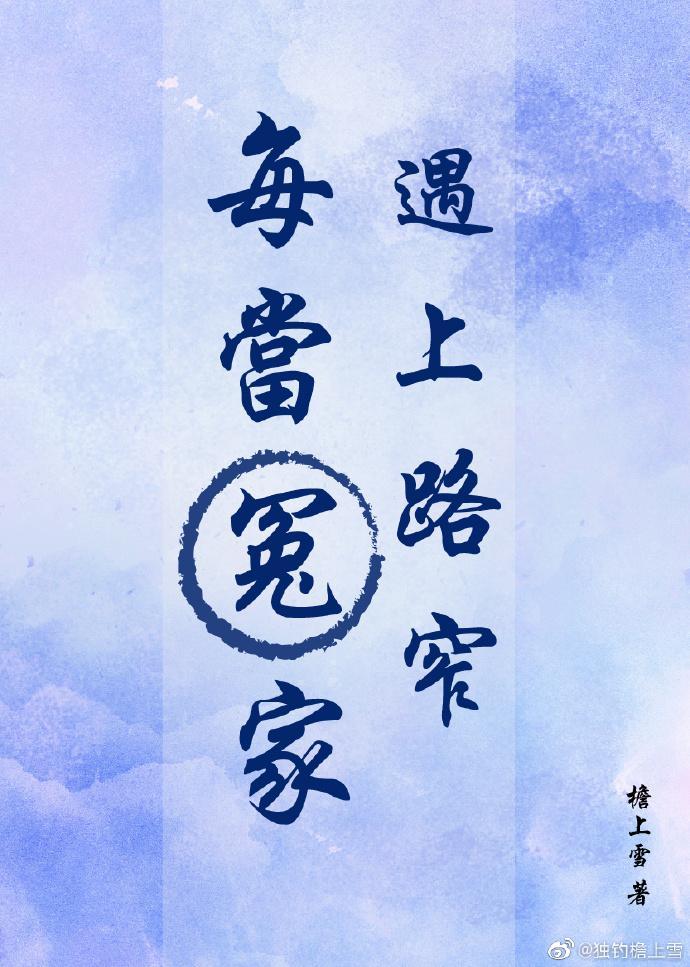 每當冤家
遇上路窄
檐上雪 著
@独钓檐上雪